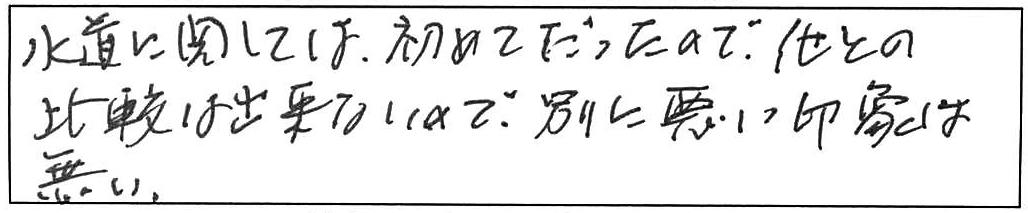 水道に関しては、初めてだったので、他との
比較は出来ないので、別に悪い印象は
無い。